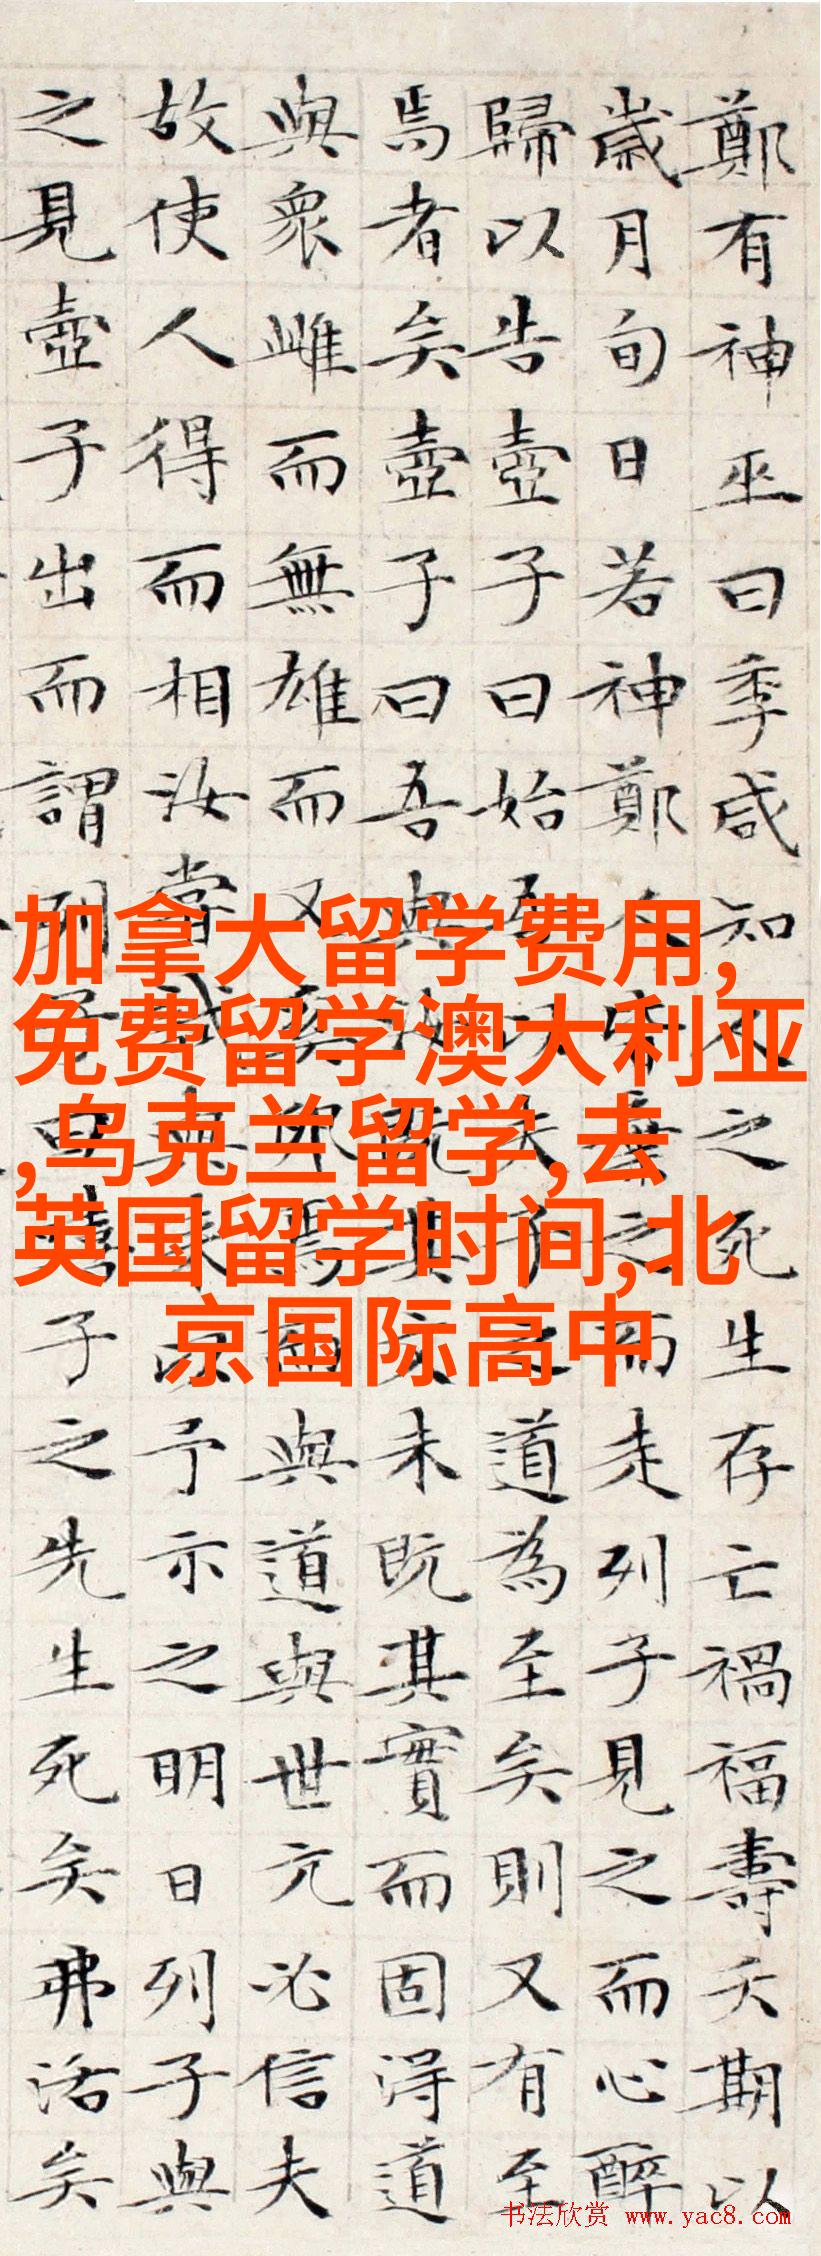 鄭有神巫曰季咸知人之死生存亡禍福壽夭期以
歲月旬日若神鄭人皆棄之而走列子見之而心醉
歸以告壺子曰始吾以夫子之道為至矣則又有至
焉者矣壺子曰吾與汝既其文未既其實而固得道
與衆雌而無雄而又奚卵焉而與道與世亢必信夫
故使人得而相汝嘗試與來以予示之明日列子與
之見壺子出而謂列子曰嘻子之先生死矣弗活矣
加拿大留学费用,
免费留学澳大利亚
,乌克兰留学,去
英国留学时间,北
京国际高中
书法欣赏 www.yac8.com